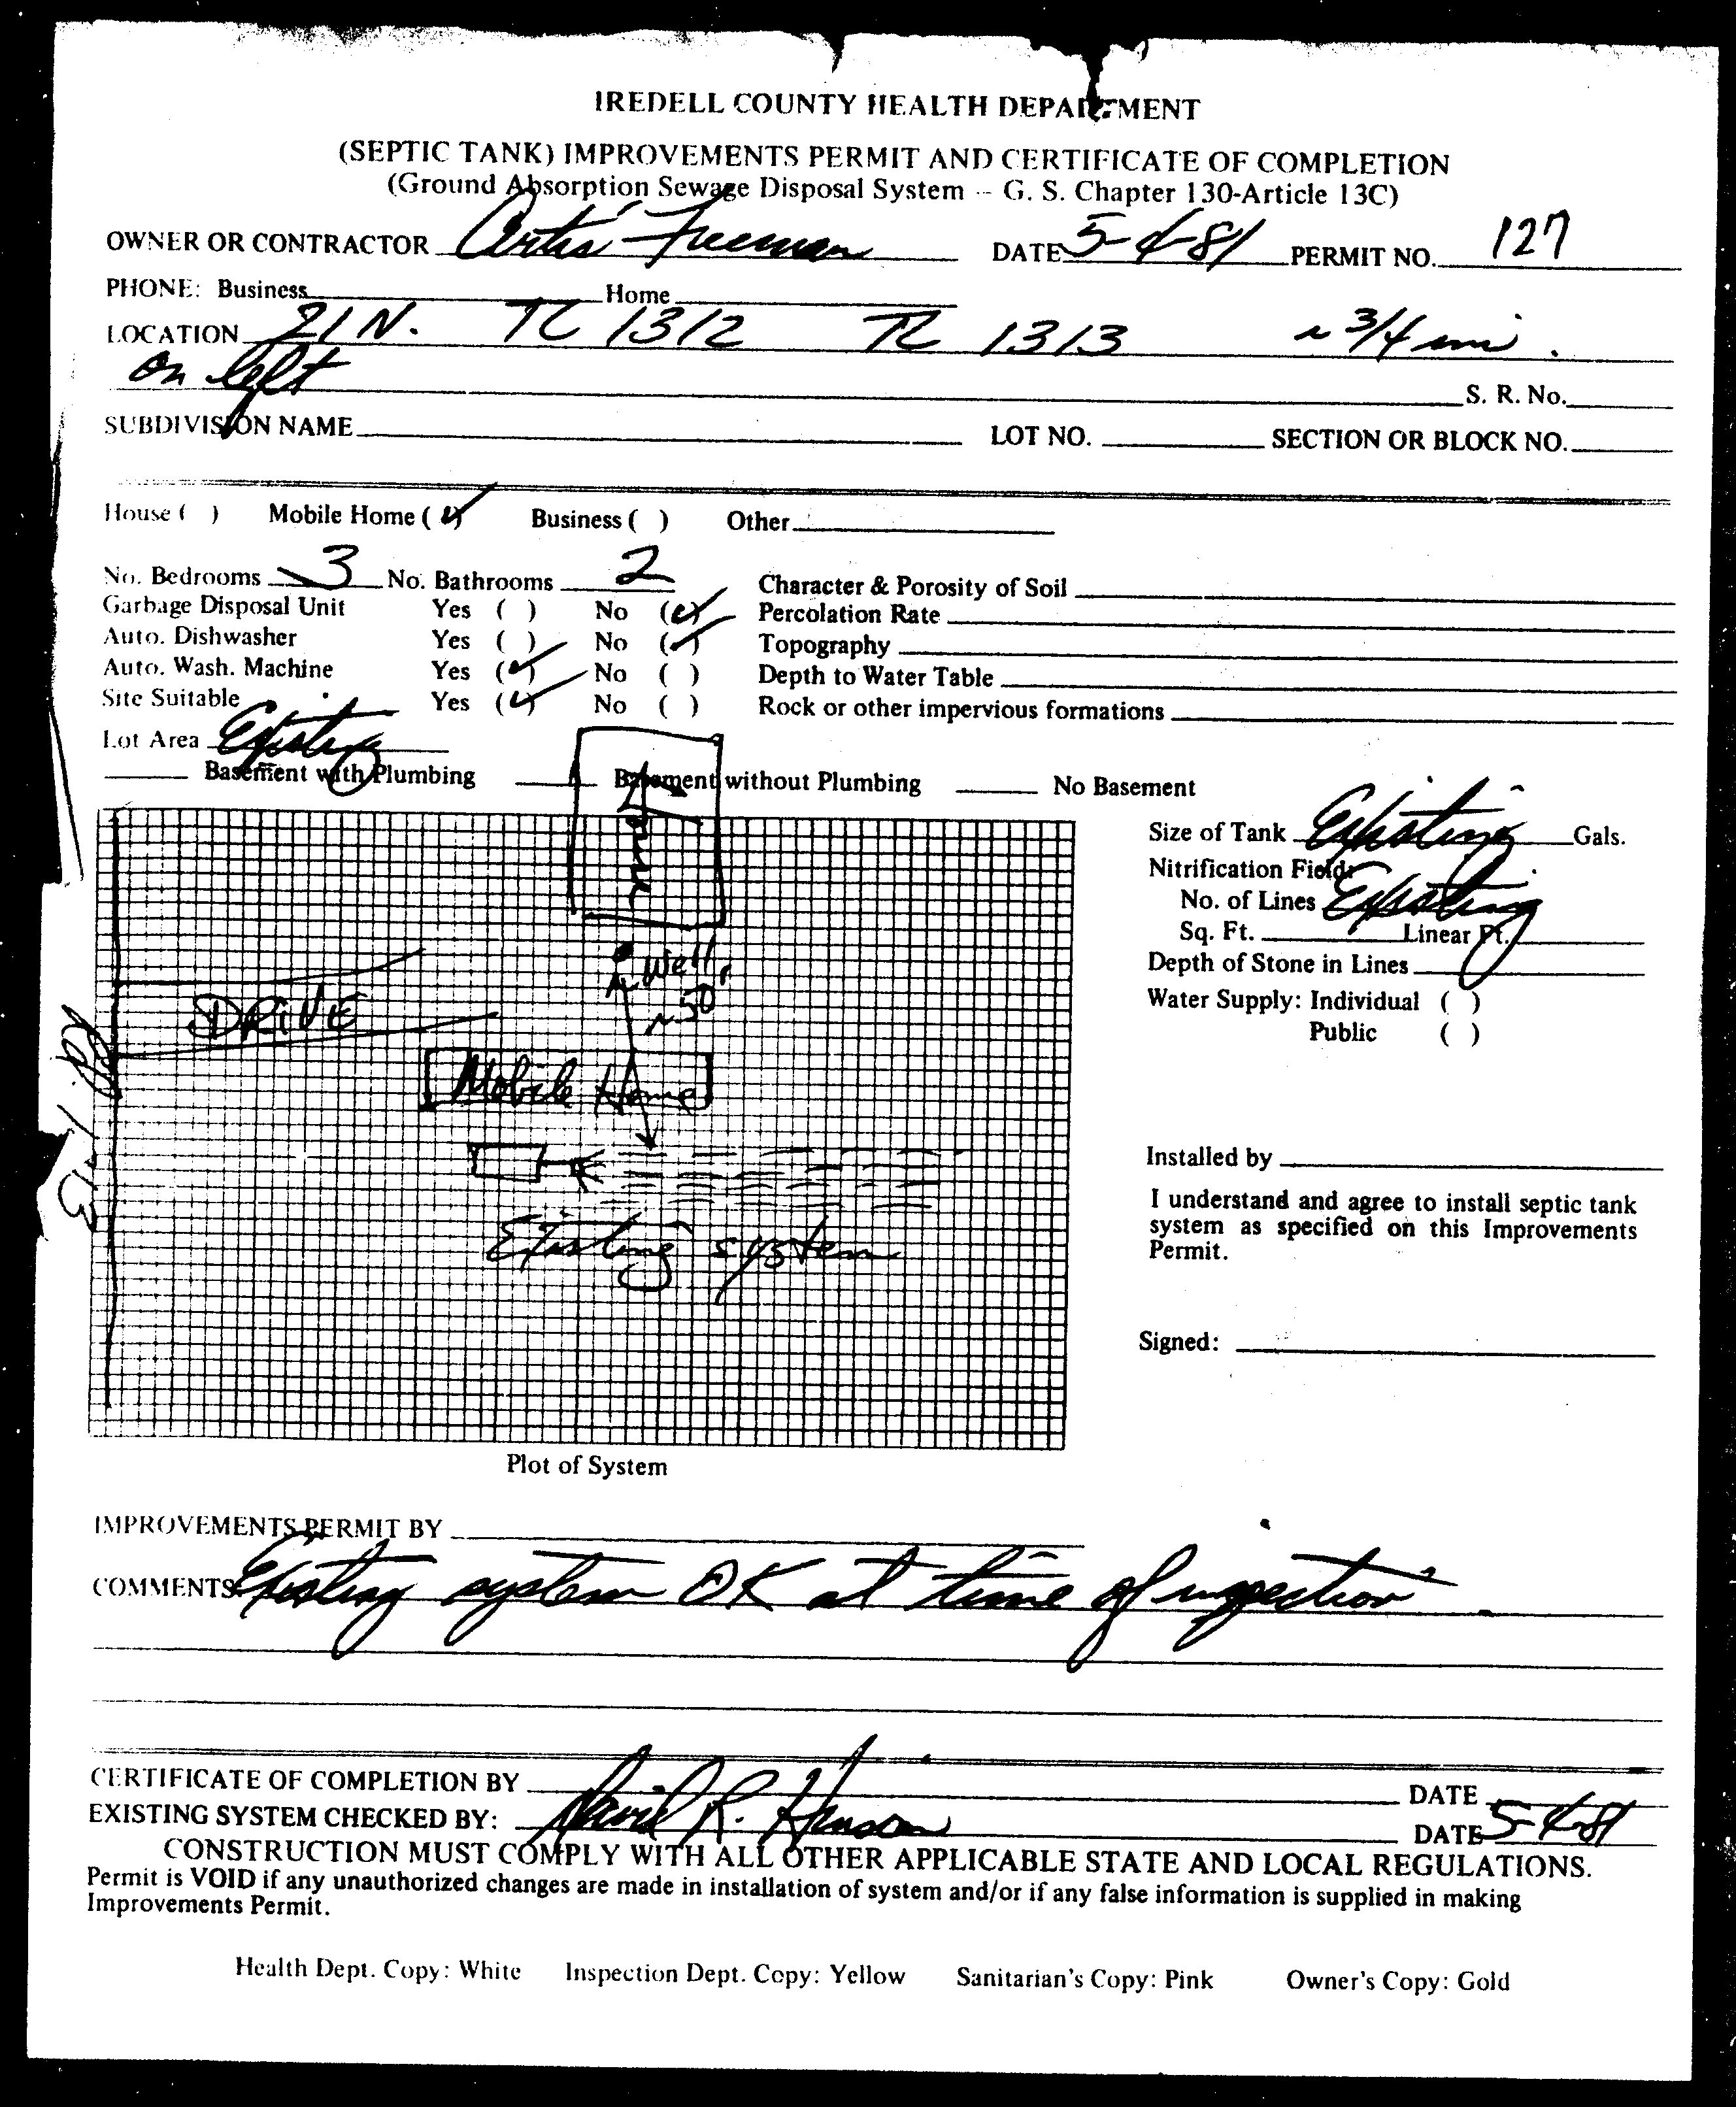 IREDELL COUNTY HEALTH DEPARTMENT
(SEPTIC TANK) IMPROVEMENTS PERMIT AND CERTIFICATE OF COMPLETION
(Ground Absorption Sewage Disposal System -- G. S. Chapter 130-Article 13C)
OWNER OR CONTRACTOR Freeman DATE 5-4-81 PERMIT NO. 127
PHONE: Business Home
LOCATION 21 N. TL 1312 TL 1313 ~ 3/4 mi.
on left S. R. No.
SUBDIVISION NAME LOT NO. SECTION OR BLOCK NO.
House ( ) Mobile Home (✓) Business ( ) Other
No. Bedrooms 3 No. Bathrooms 2 Character & Porosity of Soil
Garbage Disposal Unit Yes ( ) No (✓) Percolation Rate
Auto. Dishwasher Yes ( ) No (✓) Topography
Auto. Wash. Machine Yes (✓) No ( ) Depth to Water Table
Site Suitable Yes (✓) No ( ) Rock or other impervious formations
Lot Area Existing
Basement with Plumbing Basement without Plumbing No Basement
House
Size of Tank Existing Gals.
Nitrification Field:
No. of Lines Existing
Sq. Ft. Linear Ft.
Depth of Stone in Lines
Water Supply: Individual ( )
Public ( )
Well
~50'
DRIVE
Mobile Home
Existing system
Installed by
I understand and agree to install septic tank
system as specified on this Improvements
Permit.
Signed:
Plot of System
IMPROVEMENTS PERMIT BY
COMMENTS Existing system OK at time of inspection.
CERTIFICATE OF COMPLETION BY DATE
EXISTING SYSTEM CHECKED BY: David R. DATE 5-4-81
CONSTRUCTION MUST COMPLY WITH ALL OTHER APPLICABLE STATE AND LOCAL REGULATIONS.
Permit is VOID if any unauthorized changes are made in installation of system and/or if any false information is supplied in making
Improvements Permit.
Health Dept. Copy: White Inspection Dept. Copy: Yellow Sanitarian's Copy: Pink Owner's Copy: Gold